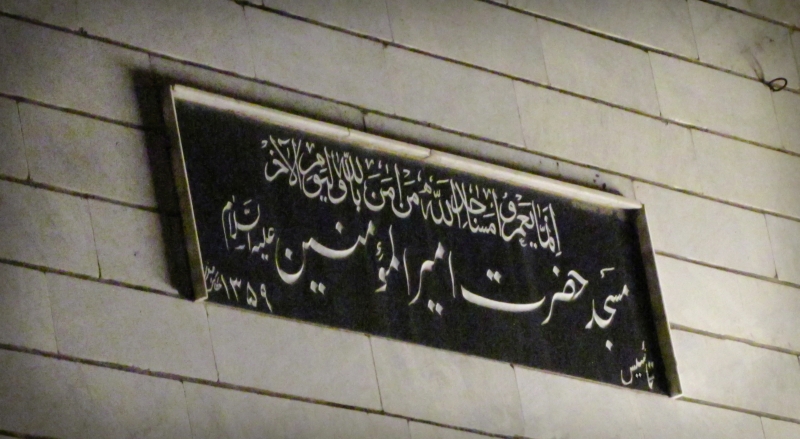 إنما يعمر مساجد الله من آمن بالله و اليوم الآخر
مسجد حضرت امیرالمؤمنین علیه السلام
تاسیس ۱۳۵۹